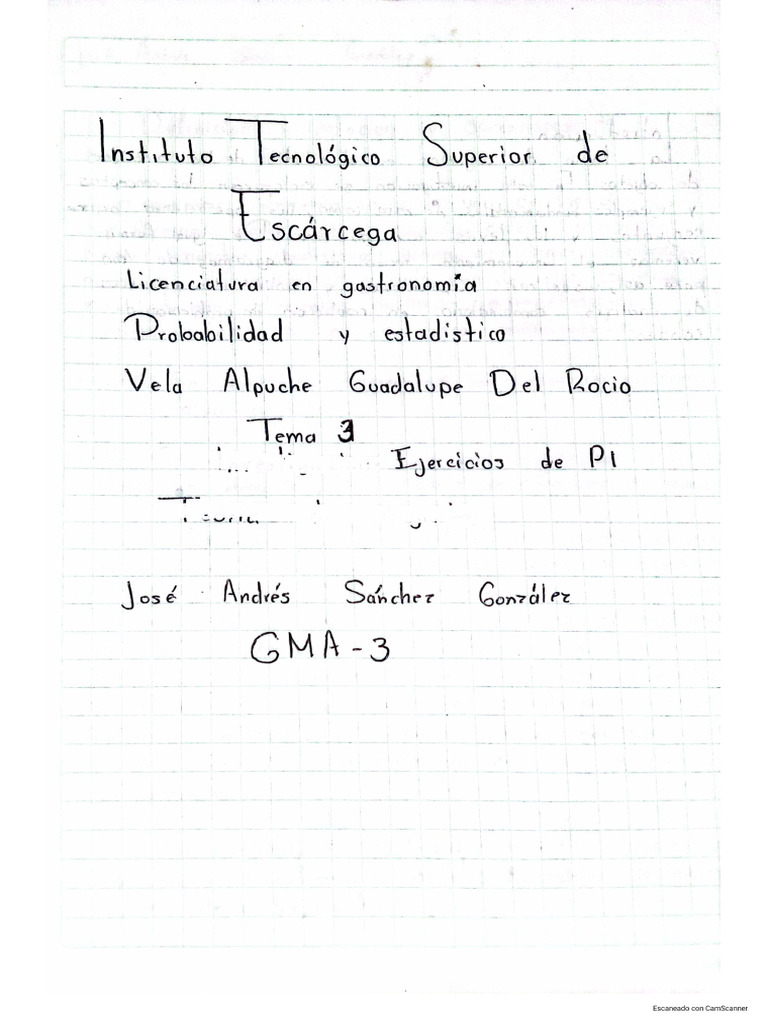 Instituto Tecnológico Superior de
Escárcega
Licenciatura en gastronomía
Probabilidad y estadistico
Vela Alpuche Guadalupe Del Rocio
Tema 3
Ejercicios de PI
José Andrés Sánchez González
GMA-3
Escaneado con CamScanner